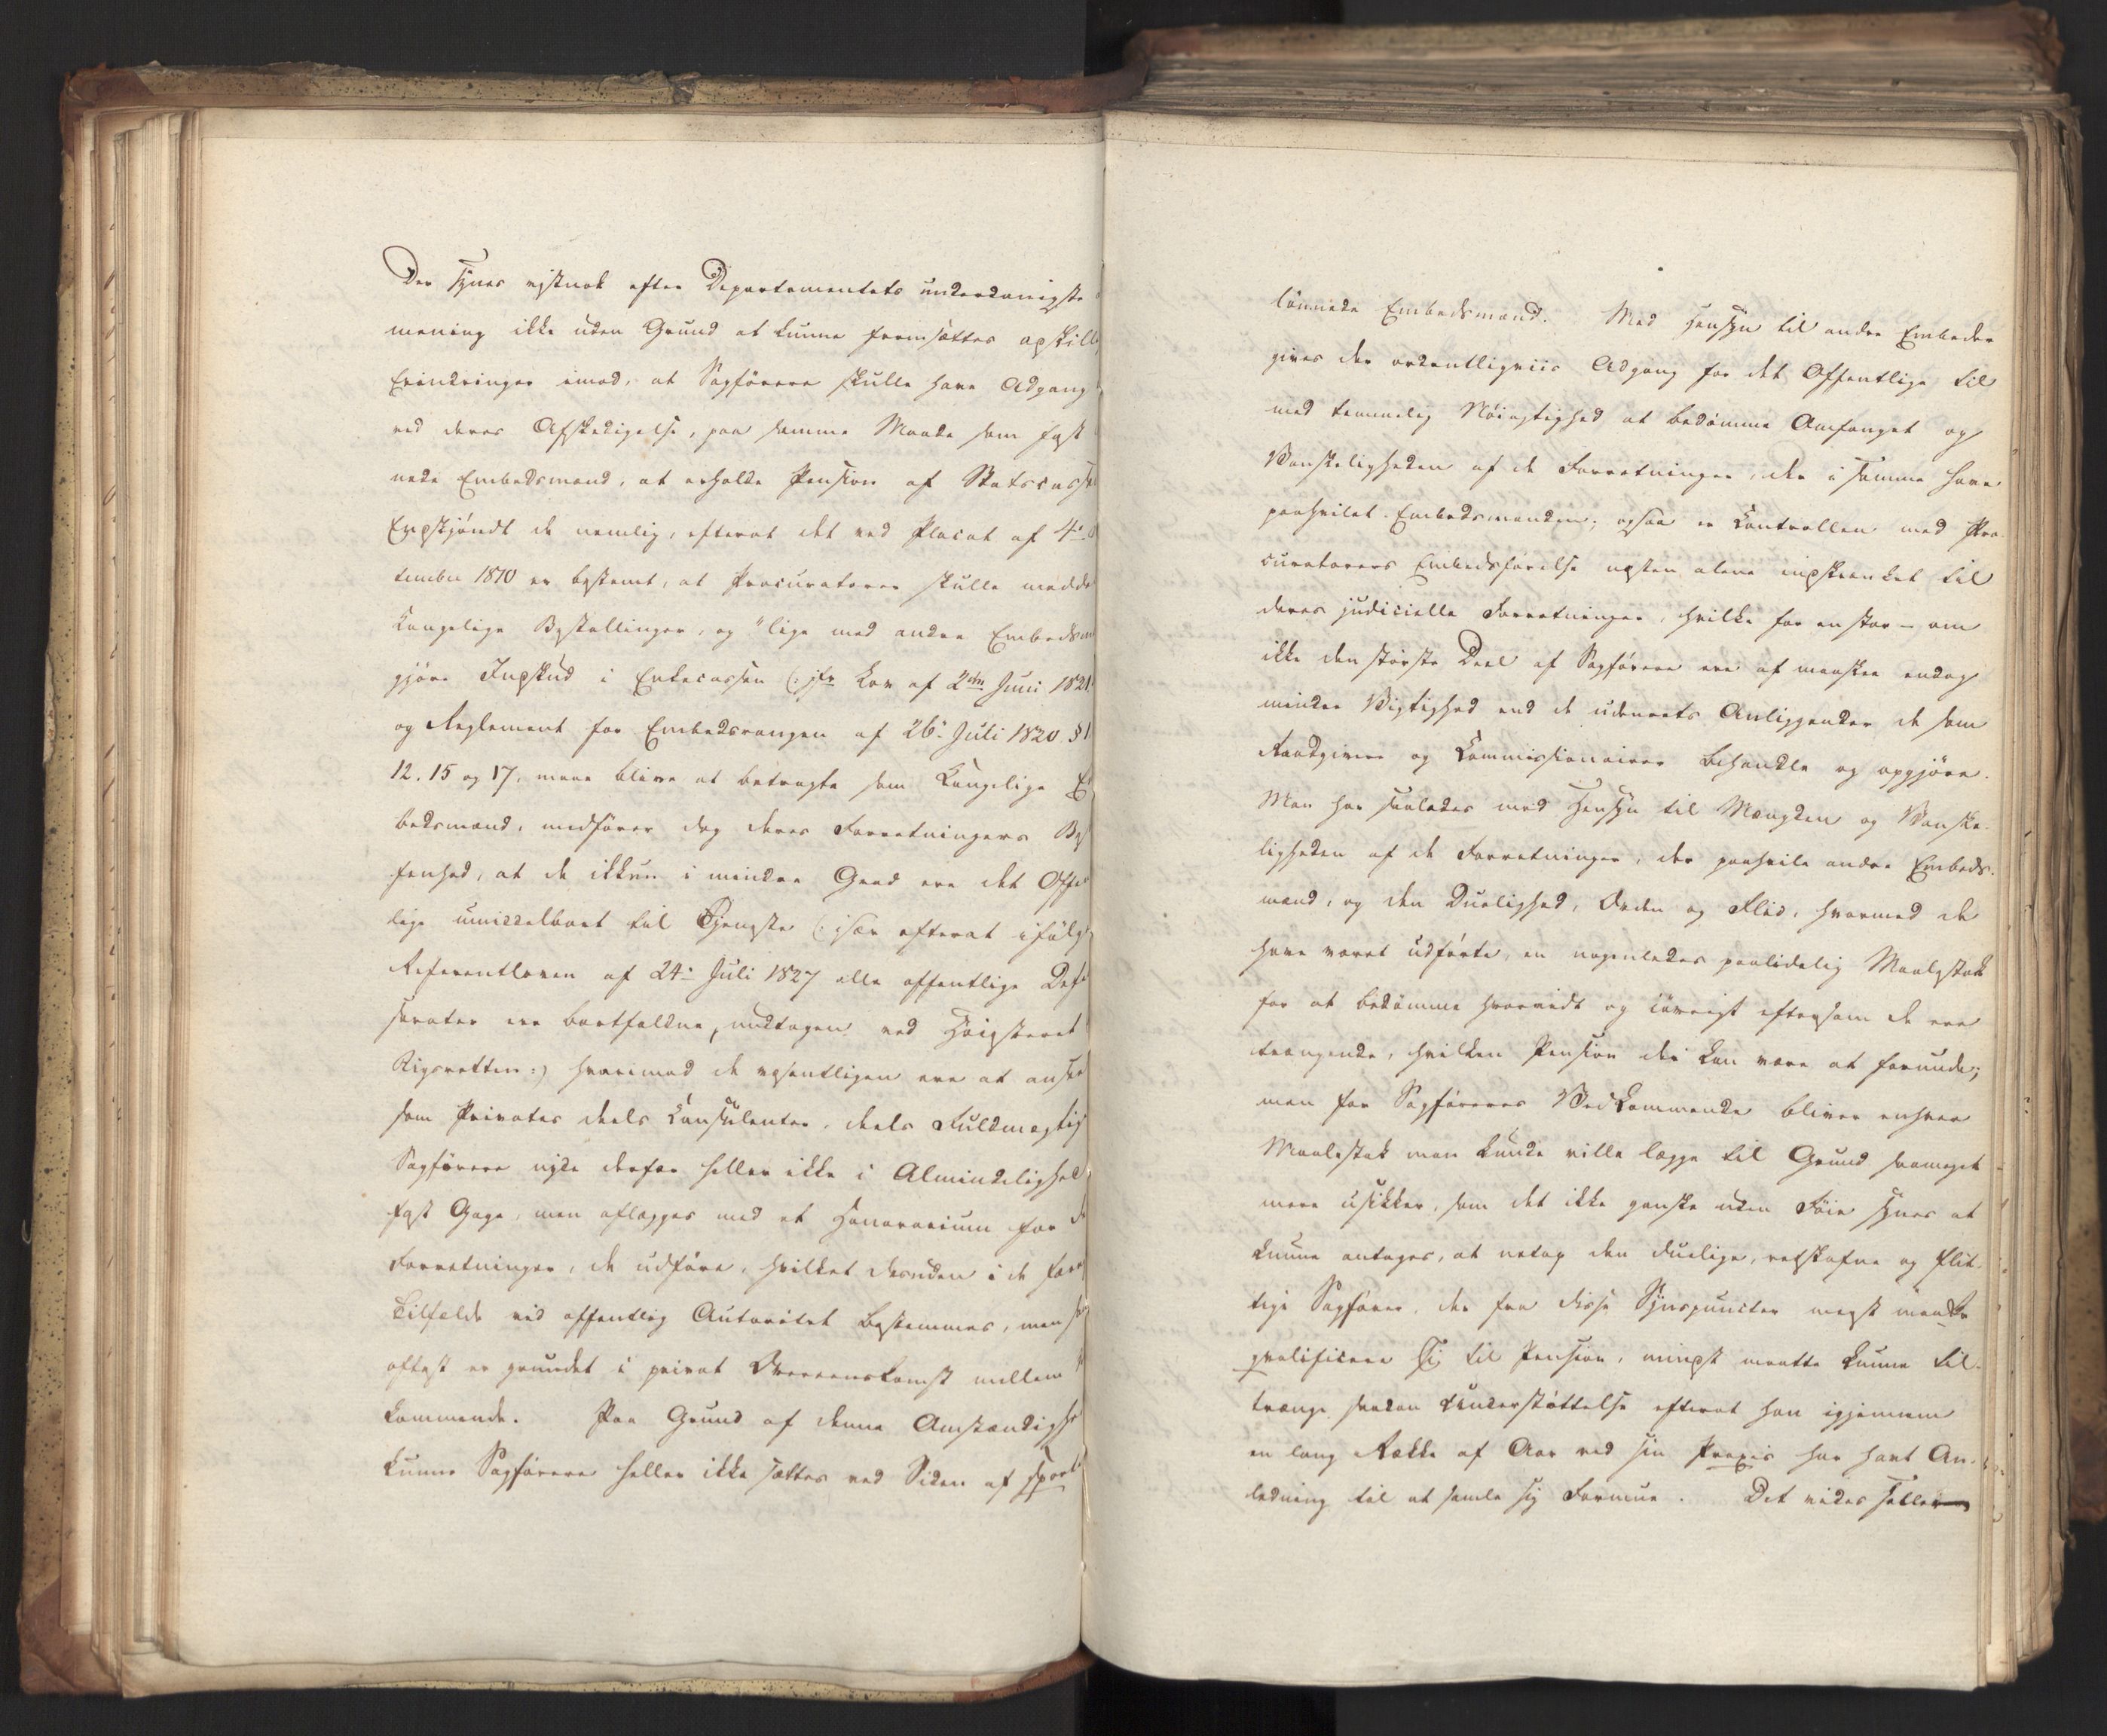 Der synes vistnok efter Departementets underdanigste
mening ikke uden Grund at kunne fremsættes adskille
Erindringer imod, at Sagførere skulle have Adgang
ved deres Afskedigelse, paa samme Maade som fast
nede Embedsmænd, at erholde Pension af Statscassen
Endskjøndt de nemlig, efterat det ved Placat af 4de
tember 1810 er bestemt, at Procuratorer skulle meddele
Kongelige Bestallinger, og "lige med andre Embedsm
gjøre Indskud i Enkecassen (: jfr Lov af 2den Juni 1821
og Reglement for Embedsrangen af 26de Juli 1820 §
12. 15 og 17, maae blive at betragte som Kongelige E
bedsmænd, medfører dog deres Forretningers Be
fenhed, at de ikkun i mindre Grad ere det Offe
lige umiddelbart til Tjeneste (: især efterat ifølge
Referentloven af 24de Juli 1827 alle offentlige Defe
sorater ere bortfaldne, undtagen ved Høiesteret
Rigsretten:) hvorimod de væsentligen ere at ansee
som Privates deels Consulenter, deels Fuldmægtig
Sagførere nyde derfor heller ikke i Almindelighed
fast Gage, men aflægges med et Honorarium for d
Forretninger, de udføre, hvilket desuden i de fær
Tilfælde ved offentlig Autoritet bestemmes, men s
oftest er grundet i privat Overeenskomst mellem
kommende. Paa Grund af denne Omstændighe
kunne Sagførere heller ikke sættes ved Siden af sport
lønnede Embedsmænd. Med Hensyn til andre Embeder
gives der ordentligviis Adgang for det Offentlige til
med temmelig Nøiagtighed at bedømme Omfanget og
Vanskeligheden af de Forretninger, der i samme have
paahvilet Embedsmanden; ogsaa er Controllen med Pro-
curatorers Embedsførelse næsten alene indskrænket til
deres judicielle Forretninger, hvilke for en stor – om
ikke den største Deel af Sagførere ere af maaskee endog
mindre Vigtighed end de udenrets Anliggender de som
Raadgivere og Commissionairer behandle og opgjøre.
Man har saaledes med Hensyn til Mængden og Vanske-
ligheden af de Forretninger, der paahvile andre Embeds-
mænd, og den Duelighed, Orden og Flid, hvormed de
have været udførte, en nogenledes paalidelig Maalestok
for at bedømme hvorvidt og iøvrigt eftersom de ere
trængende, hvilken Pension der kan være at forunde;
men for Sagføreres Vedkommende bliver enhver
Maalestok man kunde ville lægge til Grund saameget
mere usikker, som det ikke ganske uden Føie synes at
kunne antages, at netop den duelige, retskafne og flit-
tige Sagfører, der fra disse Synspuncter meest maatte
qvalificere sig til Pension, mindst maatte kunne til-
trænge saadan Understøttelse efterat han igjennem
en lang Række af Aar ved sin Praxis har havt An-
ledning til at samle sig Formue. Det vides heller